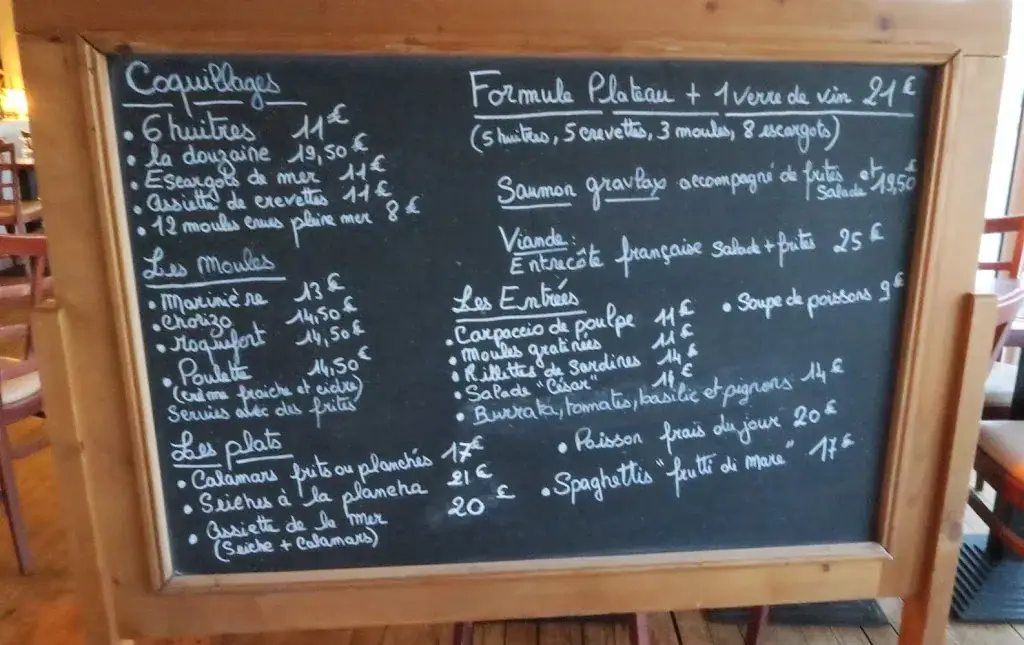 Coquillages
• 6 huitres 11€
• la douzaine 19,50€
• Escargots de mer 11€
• assiette de crevettes 11€
• 12 moules crues pleine mer 8€
Les Moules
• Marinière 13€
• chorizo 14,50€
• roquefort 14,50€
• Poulette 14,50€
(crème fraiche et cidre)
Servies avec des frites
Les plats
• Calamars frits ou planchés 17€
• Seiches à la plancha 21€
• assiette de la mer 20€
(Seiche + Calamars)
Formule Plateau + 1 verre de vin 21€
(5 huitres, 5 crevettes, 3 moules, 8 escargots)
Saumon gravlax accompagné de frites et
Salade 19,50€
Viande:
Entrecôte française Salade + frites 25€
Les Entrées
• Carpaccio de poulpe 11€
• Moules gratinées 11€
• Rillettes de Sardines 14€
• Salade "César"
• Burrata, tomates, basilic et pignons 14€
• Soupe de poissons 9€
• Poisson frais du jour 20€
• Spaghettis "frutti di mare" 17€